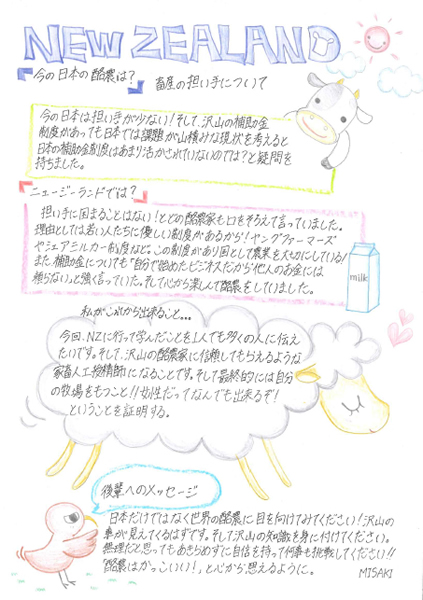 NEW ZEALAND
今の日本の酪農は？
畜産の担い手について
今の日本は担い手が少ない！そして、沢山の補助金
制度があっても日本では課題が山積みな現状を考えると
日本の補助金制度はあまり活かされていないのでは？と疑問を
持ちました。
ニュージーランドでは？
担い手に困まることはない！とどの酪農家も口をそろえて言っていました。
理由としては若い人たちに優しい制度があるから！ヤングファーマーズ
やシェアミルカー制度など。この制度があり国として農業を大切にしている！
また、補助金についても「自分で始めたビジネスだから他人のお金には
頼らない」と強く言っていた。そして心から楽しんで酪農をしていました。
milk
私がこれから出来ること…
今回、NZに行って学んだことを1人でも多くの人に伝え
たいです。そして、沢山の酪農家に信頼してもらえるような
家畜人工授精師になることです。そして最終的には自分
の牧場をもつこと！！女性だってなんでも出来るぞ！
ということを証明する。
後輩へのメッセージ
日本だけではなく世界の酪農に目を向けてみてください！沢山の
事が見えてくるはずです。そして沢山の知識を身に付けてください。
無理だと思ってもあきらめずに自信を持って何事も挑戦してください!!
「酪農はかっこいい！」と心から思えるように。
MISAKI